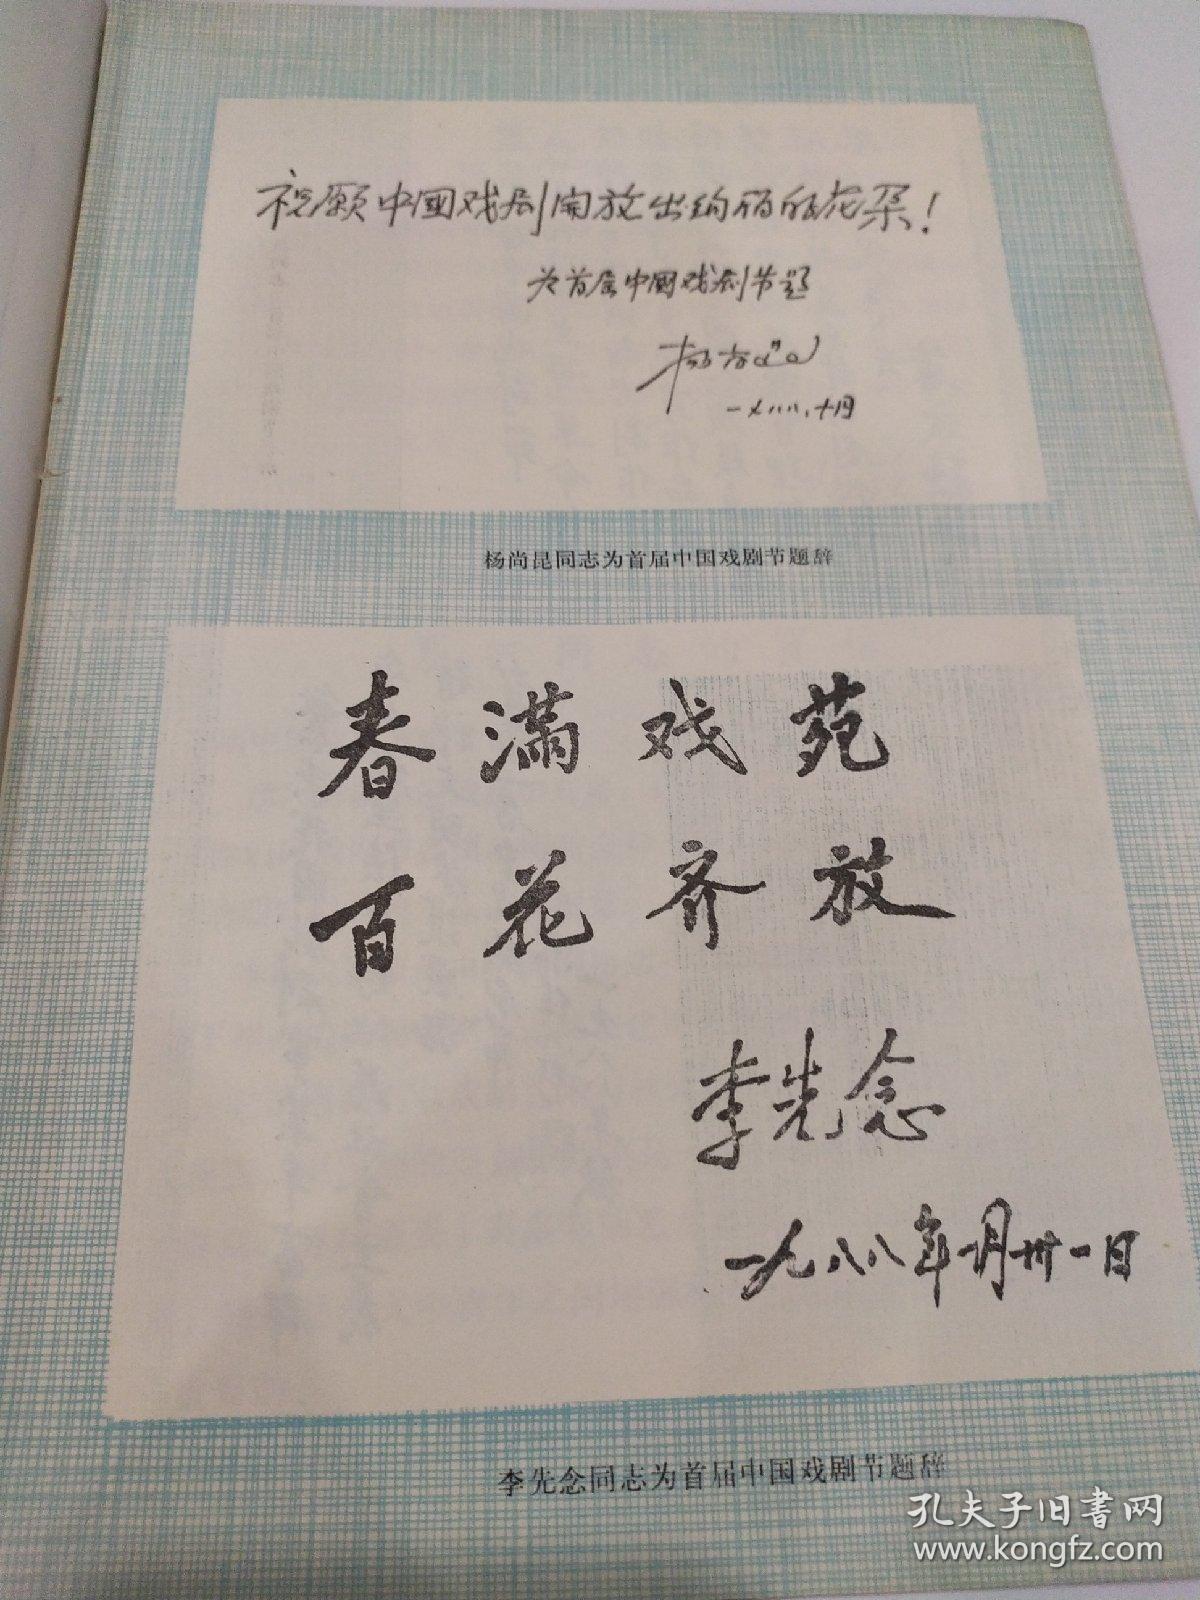 祝愿中國戏剧開放出绚丽的花朵！
为首届中國戏剧节题
杨尚昆
一九八八．十月
杨尚昆同志为首届中国戏剧节题辞
春满戏苑
百花齐放
李先念
一九八八年十月卅一日
李先念同志为首届中国戏剧节题辞
孔夫子旧书网
www.kongfz.com